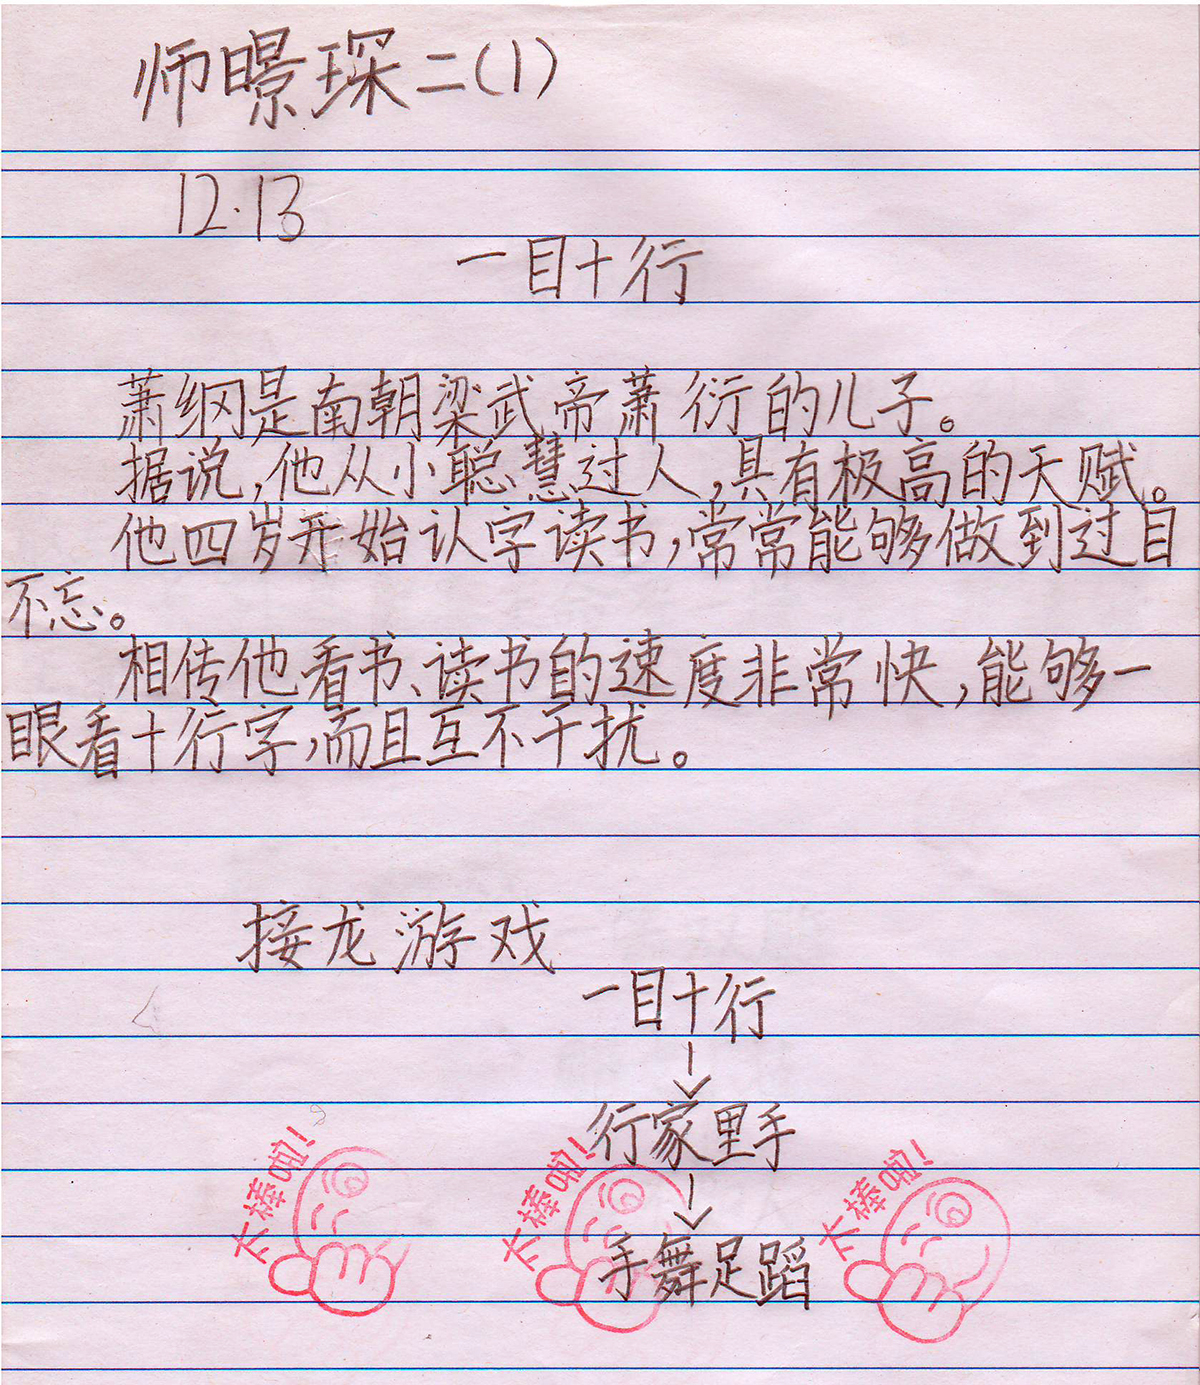 师暻琛二(1)
12.13
一目十行
萧纲是南朝梁武帝萧衍的儿子。
据说,他从小聪慧过人,具有极高的天赋。
他四岁开始认字读书,常常能够做到过目
不忘。
相传他看书、读书的速度非常快,能够一
眼看十行字,而且互不干扰。
接龙游戏
一目十行
↓
行家里手
↓
手舞足蹈
太棒啦!
太棒啦!
太棒啦!